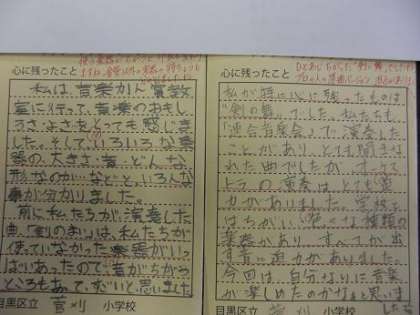 心に残ったこと
私は、音楽かん賞教
室に行って、音楽のおもし
ろさ、よさをとっても感じま
した。そして、いろいろな楽
器の、大きさ、音、どんな
形なのかなどと、いろんな
事が分かりました。
前に私たちが演奏した
曲、「剣のまい」は、私たちが
使っていなかった楽器がいっ
ぱいあったので、音がちがうと
ころもあって、すごいと思いました
目黒区立 菅刈 小学校
心に残ったこと
私が特に心に残ったものは
"剣の舞"でした。私たちも、
「連合音楽会」で演奏した
ことがあり、とても聞きな
れた曲でしたが、オーケス
トラの演奏は、とても迫
力がありました。学校と
はちがい、色々な種類の
楽器があり、すべてが出
す音に迫力がありました。
今回は、自分なりに音楽
が楽しめたのかなと思いま
した。
目黒区立 菅刈 小学校